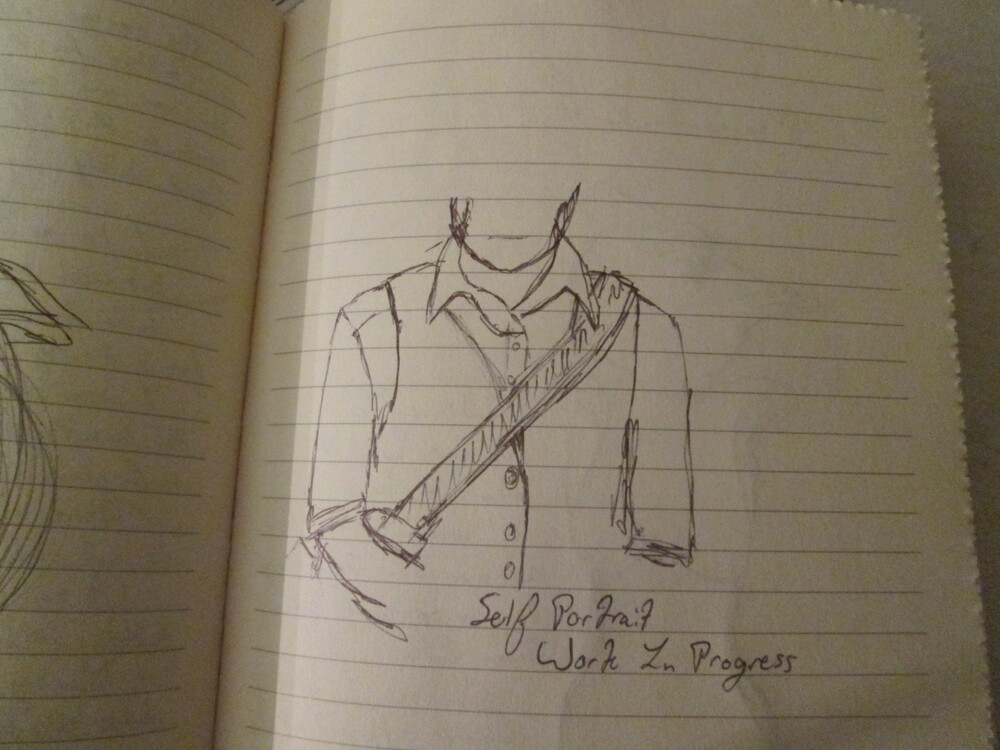 Self Portrait
Work In Progress